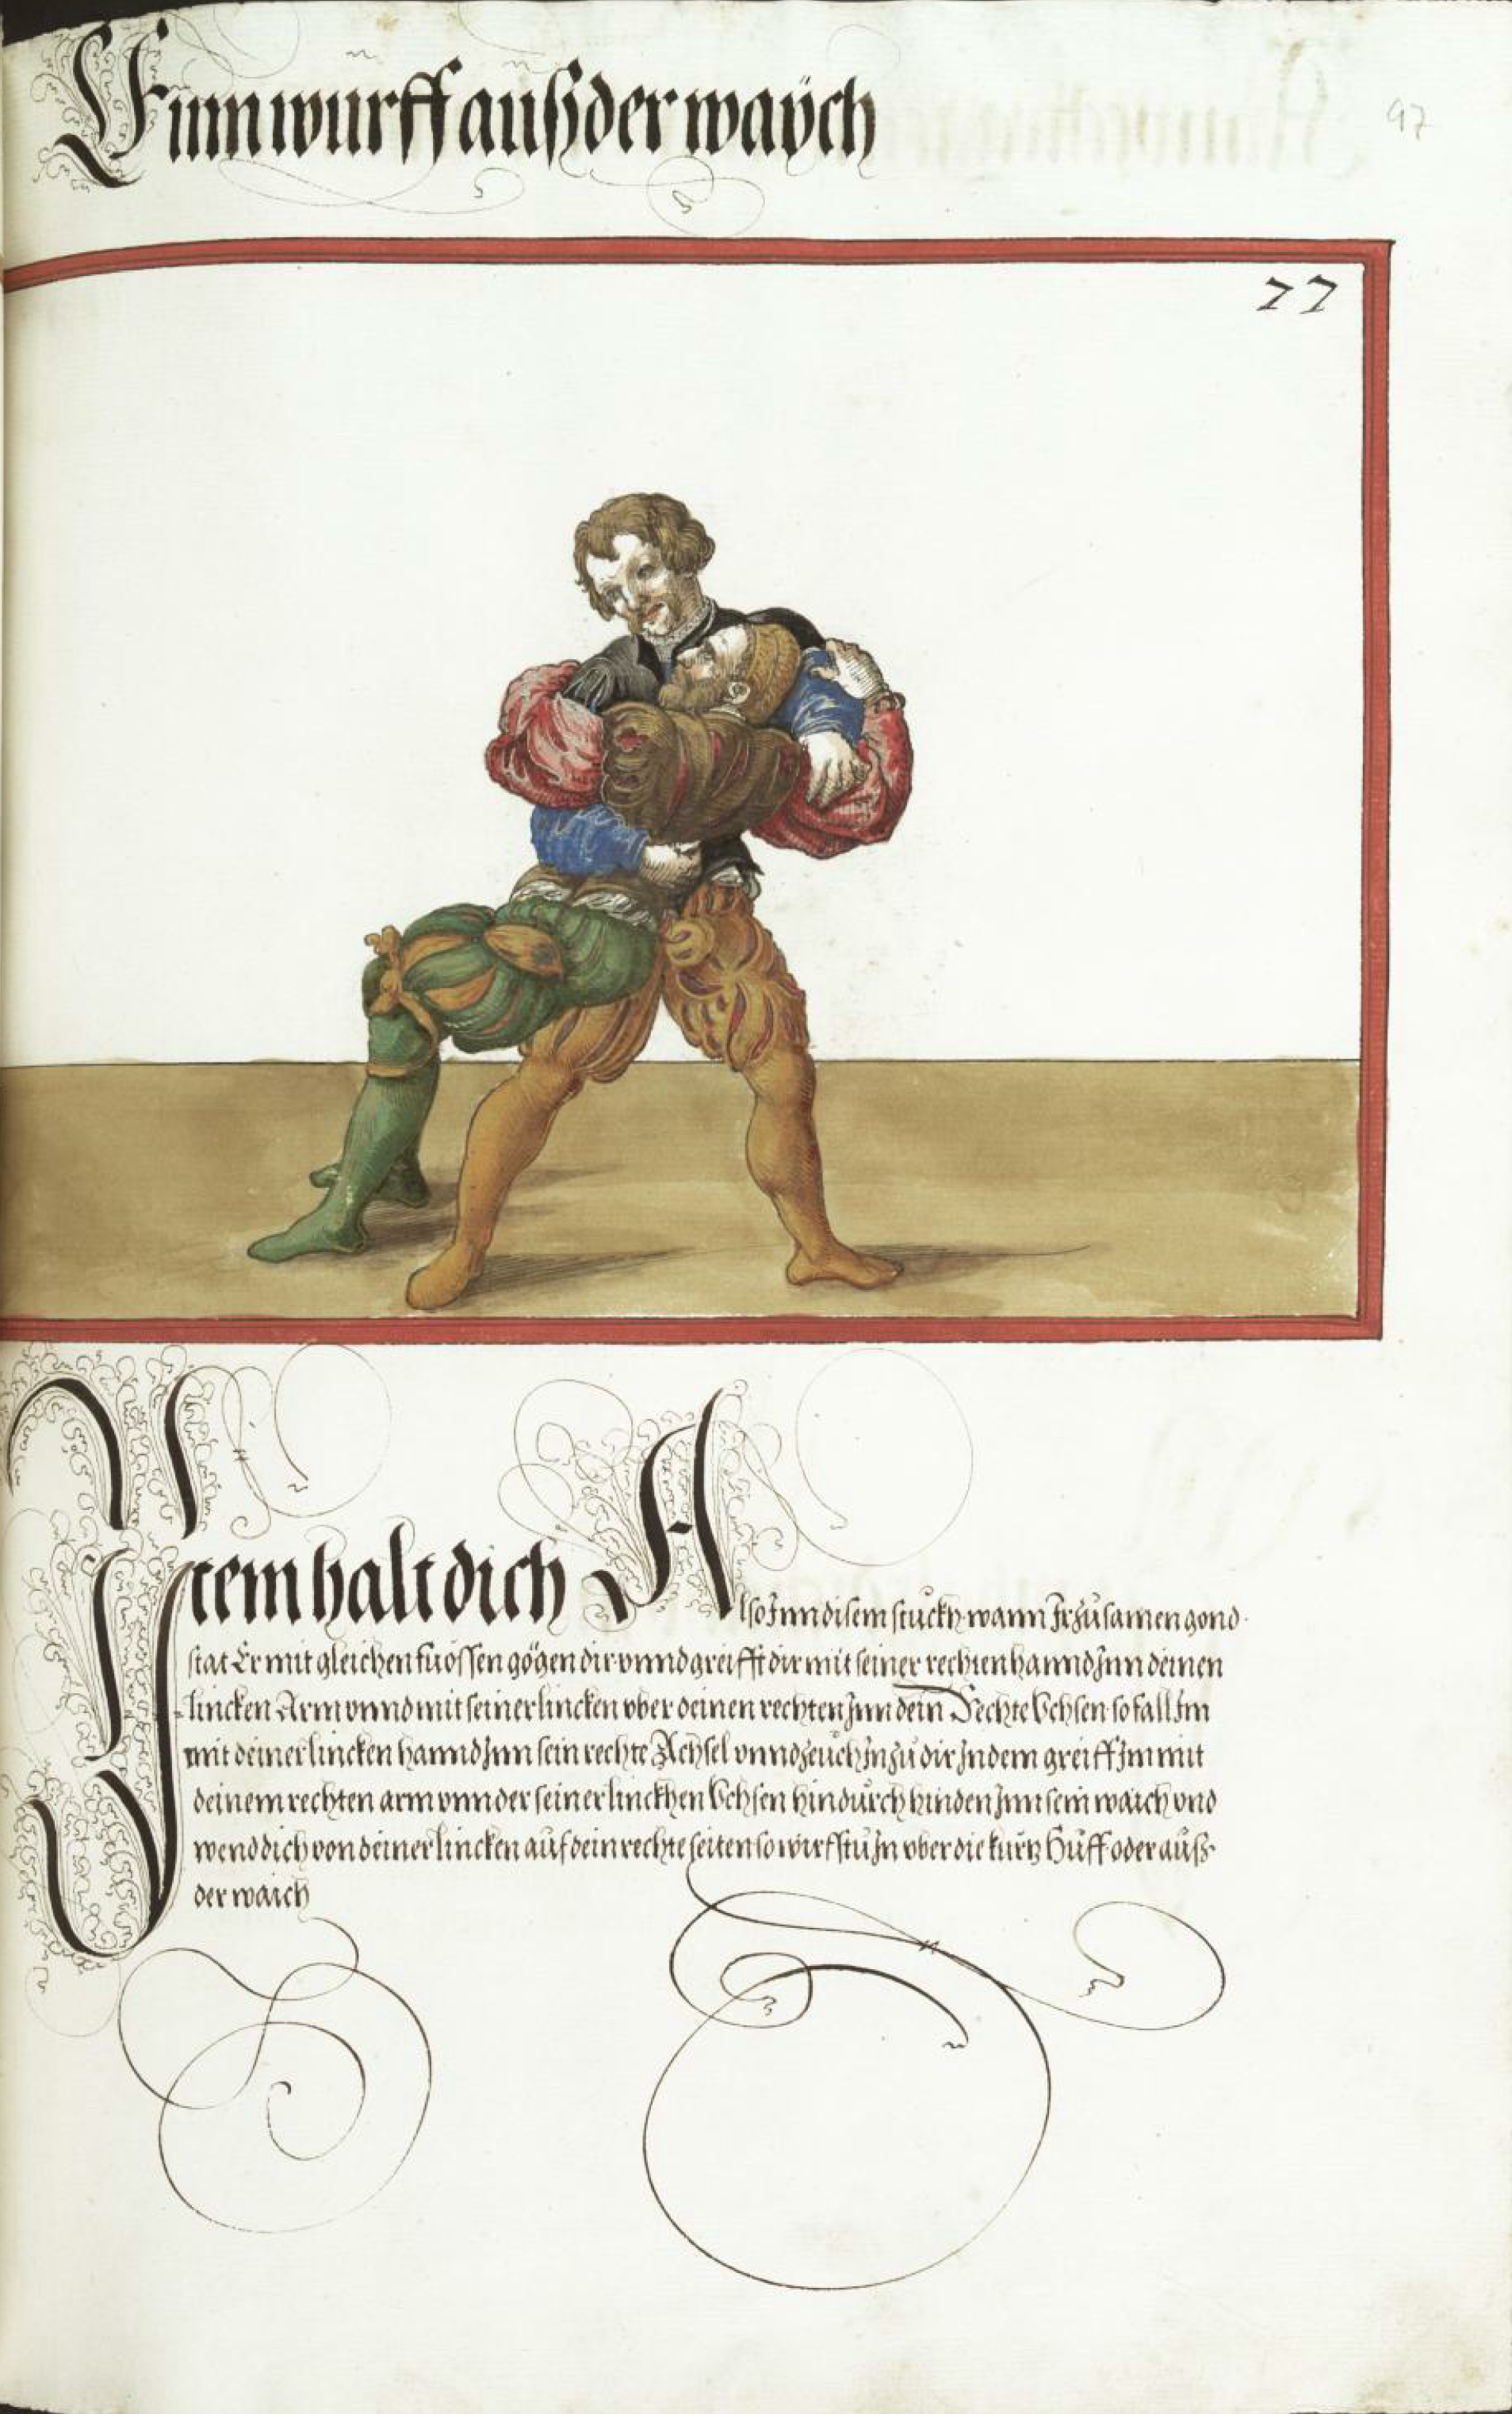 Einn wurff auß der waÿch
97
77
Ytem halt dich Also Inn disem stuckh wann Ir zůsamen gond
stat Er mit gleichen fuössen gögen dir vnnd greifft dir mit seiner rechten hannd Inn deinen
lincken Arm vnnd mit seiner lincken vber deinen rechten Inn dein Rechte Vchsen so fall Im
mit deiner lincken hannd Inn sein rechte Achsel vnnd zeuch In zu dir Indem greiff Im mit
deinem rechten arm vnnder seiner linckhen Vchsen hindurch hinden Inn sein waich vnd
wend dich von deiner lincken auf dein rechte seiten so wirfstu In vber die kurtz Huff oder auß
der waich